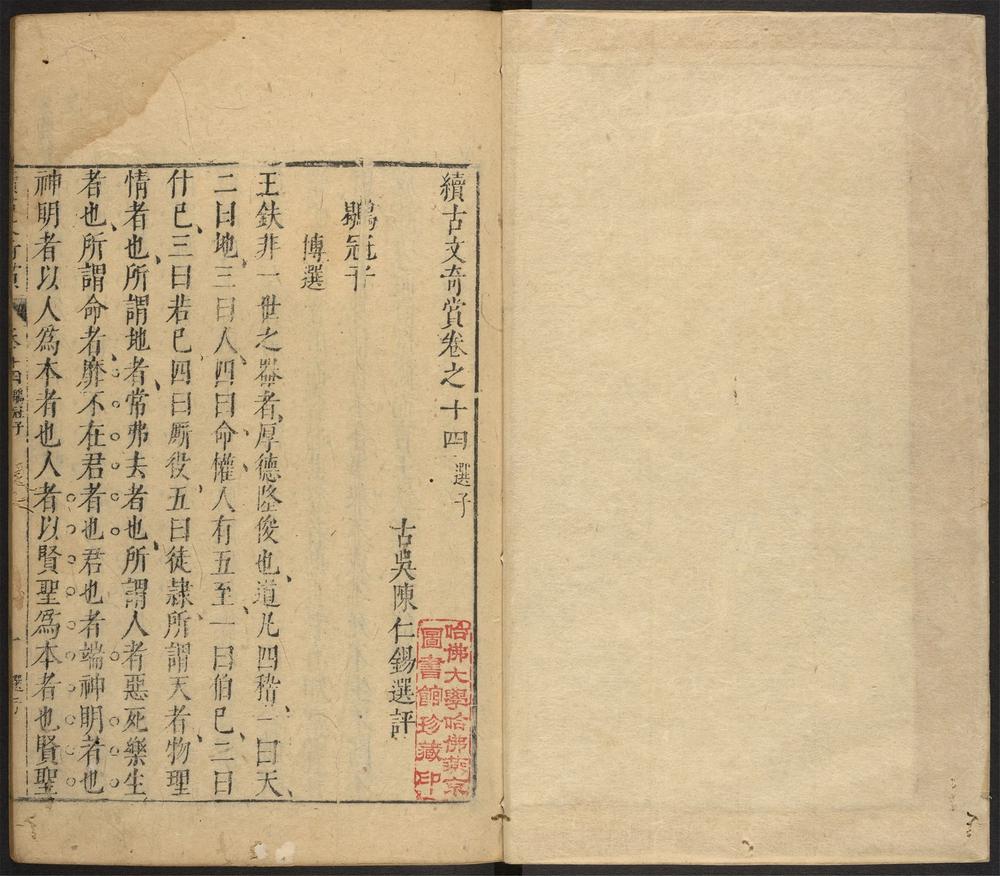 續古文奇賞卷之十四 選子
古吳陳仁錫選評
鶡冠子
博選
王鈇非一世之器者厚德隆俊也道凡四稽一曰天
二曰地三曰人四曰命懽人有五至一曰伯巳二曰
什巳三曰若巳四曰厮役五曰徒隷所謂天者物理
情者也所謂地者常弗去者也所謂人者惡死樂生
者也所謂命者靡不在君者也君也者端神明者也
神明者以人爲本者也人者以賢聖爲本者也賢聖
卷十四 鶡冠子
一
選子
哈佛大學哈佛燕京
圖書館珍藏印